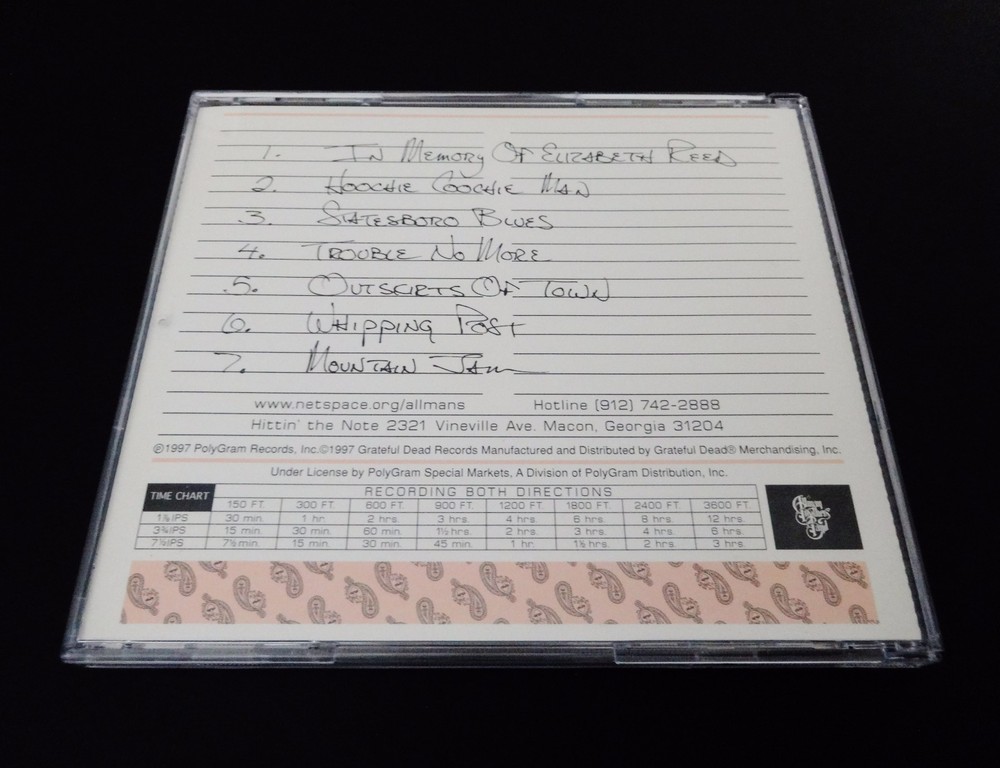 1. In Memory Of Elizabeth Reed
2. Hoochie Coochie Man
3. Statesboro Blues
4. Trouble No More
5. Outscirts Of Town
6. Whipping Post
7. Mountain Jam
www.netspace.org/allmans Hotline (912) 742-2888
Hittin' the Note 2321 Vineville Ave. Macon, Georgia 31204
℗1997 PolyGram Records, Inc.©1997 Grateful Dead Records Manufactured and Distributed by Grateful Dead® Merchandising, Inc.
Under License by PolyGram Special Markets, A Division of PolyGram Distribution, Inc.
TIME CHART RECORDING BOTH DIRECTIONS
150 FT. 300 FT. 600 FT. 900 FT. 1200 FT. 1800 FT. 2400 FT. 3600 FT.
1⅞IPS 30 min. 1 hr. 2 hrs. 3 hrs. 4 hrs. 6 hrs. 8 hrs. 12 hrs.
3¾IPS 15 min. 30 min. 60 min. 1½ hrs. 2 hrs. 3 hrs. 4 hrs. 6 hrs.
7½IPS 7½ min. 15 min. 30 min. 45 min. 1 hr. 1½ hrs. 2 hrs. 3 hrs.
The Allman Brothers Band